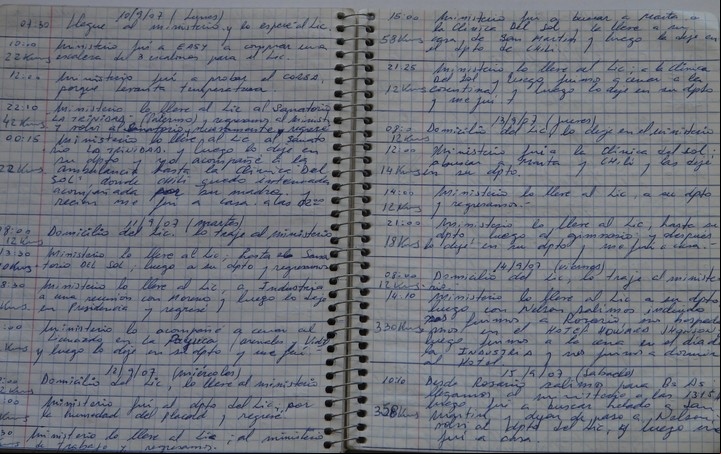 10/9/07 (Lunes)
07:30 Llegue al ministerio y lo espere al Lic.
10:10 Ministerio fui a EASY a comprar una
22 Kms escalera de 3 escalones para el Lic.
12:00 Ministerio fui a probar el CORSA,
porque levanta temperatura
22:10 Ministerio lo lleve al Lic al Sanatorio
42 Kms LA TRINIDAD (Palermo) y regresamos al Minist
y al Sanatorio y nuevamente y regrese
00:15 Ministerio lo lleve al Lic al Sanato
rio LA TRINIDAD y luego lo deje en
su dpto y yo acompañe a la
22 Kms ambulancia hasta la Clinica Del
Sol: donde CHILI quedo internada
acompañada por su madre,
recien me fui a casa a las
11/9/07 (martes)
8:00 Domicilio del Lic, lo traje al ministerio
12 Kms
13:30 Ministerio lo lleve al Lic; hasta Sana
Kms torio DEL SOL; luego a su dpto y regresamos
8:30 Ministerio lo lleve al Lic, a Industria
a una reunion con Moreno y luego lo deje
Kms en Presidencia y regrese
:00 Ministerio lo acompañe a cenar al
Kms Licenciado en la
y luego lo deje en su dpto y me fui
12/9/07 (miercoles)
:00 Domicilio del Lic, lo lleve al ministerio
:00 Ministerio fui al dpto del Lic, por
Kms la humedad del placard y regrese
:30 Ministerio lo lleve al Lic; al ministerio
Kms de Trabajo y regresamos.
15:00 Ministerio fui a buscar a Marta a
la Clinica DEL SOL y la lleve a su
58 Kms casa, de San Martin y luego la deje en
el dpto de CHILI
21:25 Ministerio lo lleve al Lic; a la Clinica
Del Sol, luego fuimos a cenar a la
12 Kms y luego lo deje en su dpto
y me fui
13/9/07 (jueves)
08:00 Domicilio del Lic, lo deje en el ministerio
12 Kms
12:00 Ministerio fui a la Clinica del sol:
a buscar a Marta y CHILI y las deje
14 Kms en su dpto.
14:00 Ministerio lo lleve al Lic a su dpto
12 Kms y regresamos.-
21:00 Ministerio lo lleve al Lic, hasta su
dpto luego al gimnasio; y despues
18 Kms lo deje en su dpto y me fui a casa.-
14/9/07 (viernes)
08:00 Domicilio del Lic, lo traje al ministe
12 Kms rio.-
14:10 Ministerio lo lleve al Lic a su dpto
luego con Nelson salimos
fuimos a Rosario nos hospeda
330 Kms mos en el HOTEL HOWARD JHONSON
luego fuimos a la cena en el dia de
la INDUSTRIA y nos fuimos a dormir
al HOTEL
15/9/07 (sabado)
10:10 Desde Rosario salimos para Bs As
llegamos al ministerio a las 13:15
luego fui a buscar helado a San
358 Kms Martin y dejar de paso a Nelson,
al dpto del Lic y luego me
fui a casa